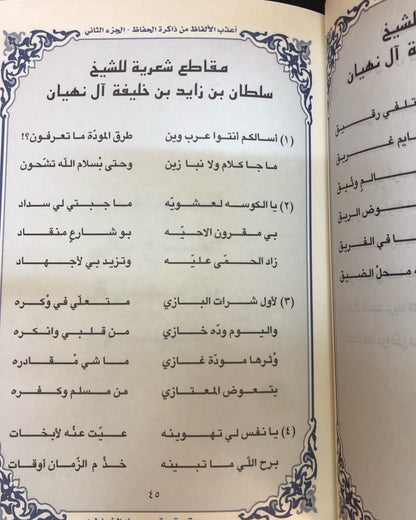 أعذب الألفاظ من ذاكرة الحفاظ - الجزء الثاني
مقاطع شعرية للشيخ
سلطان بن زايد بن خليفة آل نهيان
(١) أسالكم أنتوا عرب وين طرق المودّة ما تعرفون؟!
ما جا كلام ولا نبا زين وحتى بْسلام اللّه تشحّون
(٢) يا الكوسه لعشويّه ما جبتي لي سداد
بي مقرون الاحيّه بو شارعٍ منقاد
زاد الحمّى عليّه وتزيد بي لأجهاد
(٣) لأول شرات البازي متعلّي في وُكره
واليوم ودّه خازي من قلبي وانكره
وُثرها مودّة غازي ما شي مْقادره
يتعوض المعتازي من مسلم وكفره
(٤) يا نفس لي تهوينه عيّت عنْه لأبخات
برح اللّي ما تبينه خذْ م الزّمان أوقات
٤٥
آل نهيان
تلفي رقيق
غريق
وثيق
الريق
ا في الفريق
ه محلّ الضيق